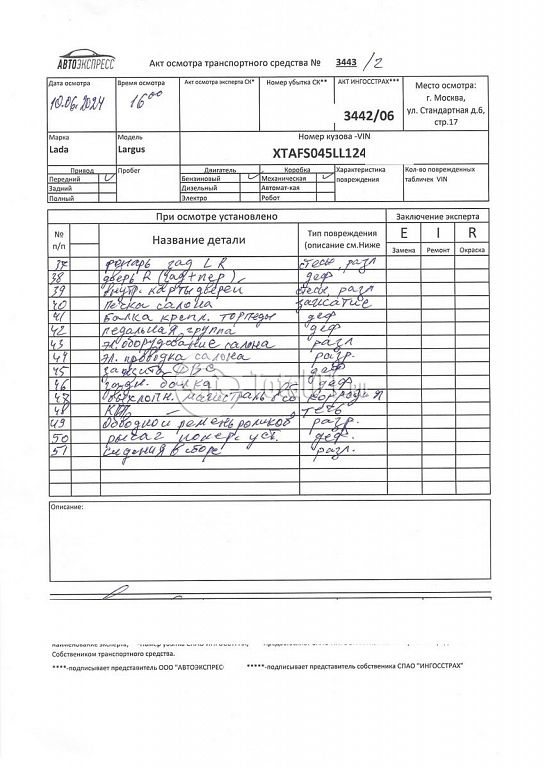 АВТОЭКСПРЕСС
Акт осмотра транспортного средства № 3443 /2
Дата осмотра Время осмотра Акт осмотра эксперта СК* Номер убытка СК** АКТ ИНГОССТРАХ*** Место осмотра:
г. Москва,
ул. Стандартная д.6,
стр.17
10.06.2024 16 00 3442/06
Марка Модель Номер кузова -VIN
Lada Largus XTAFS045LL124
Привод Пробег Двигатель Коробка Характеристика повреждения Кол-во поврежденных табличек VIN
Передний Бензиновый Механическая
Задний Дизельный Автомат-кая
Полный Электро Робот
При осмотре установлено Заключение эксперта
№ п/п Название детали Тип повреждения (описание см.Ниже E I R
Замена Ремонт Окраска
37 фонарь зад LR разл
38 дверь R (зад+пер) деф
39 внутр. карты дверей разл
40 Печка салона зажатие
41 Балка крепл. торпеды деф
42 педальная группа деф
43 эл. оборудование салона разл
44 эл. проводка салона разр.
45 защита ДВС деф
46 задн. балка деф
47 коррозия
48 КПП течь
49 Обводной ремень роликов разр.
50 рычаг попереч уст. деф.
51 сидения в сборе разл.
Описание:
Собствеником транспортного средства.
****-подписывает представитель ООО "АВТОЭКСПРЕС *****-подписывает представитель собственика СПАО "ИНГОССТРАХ"